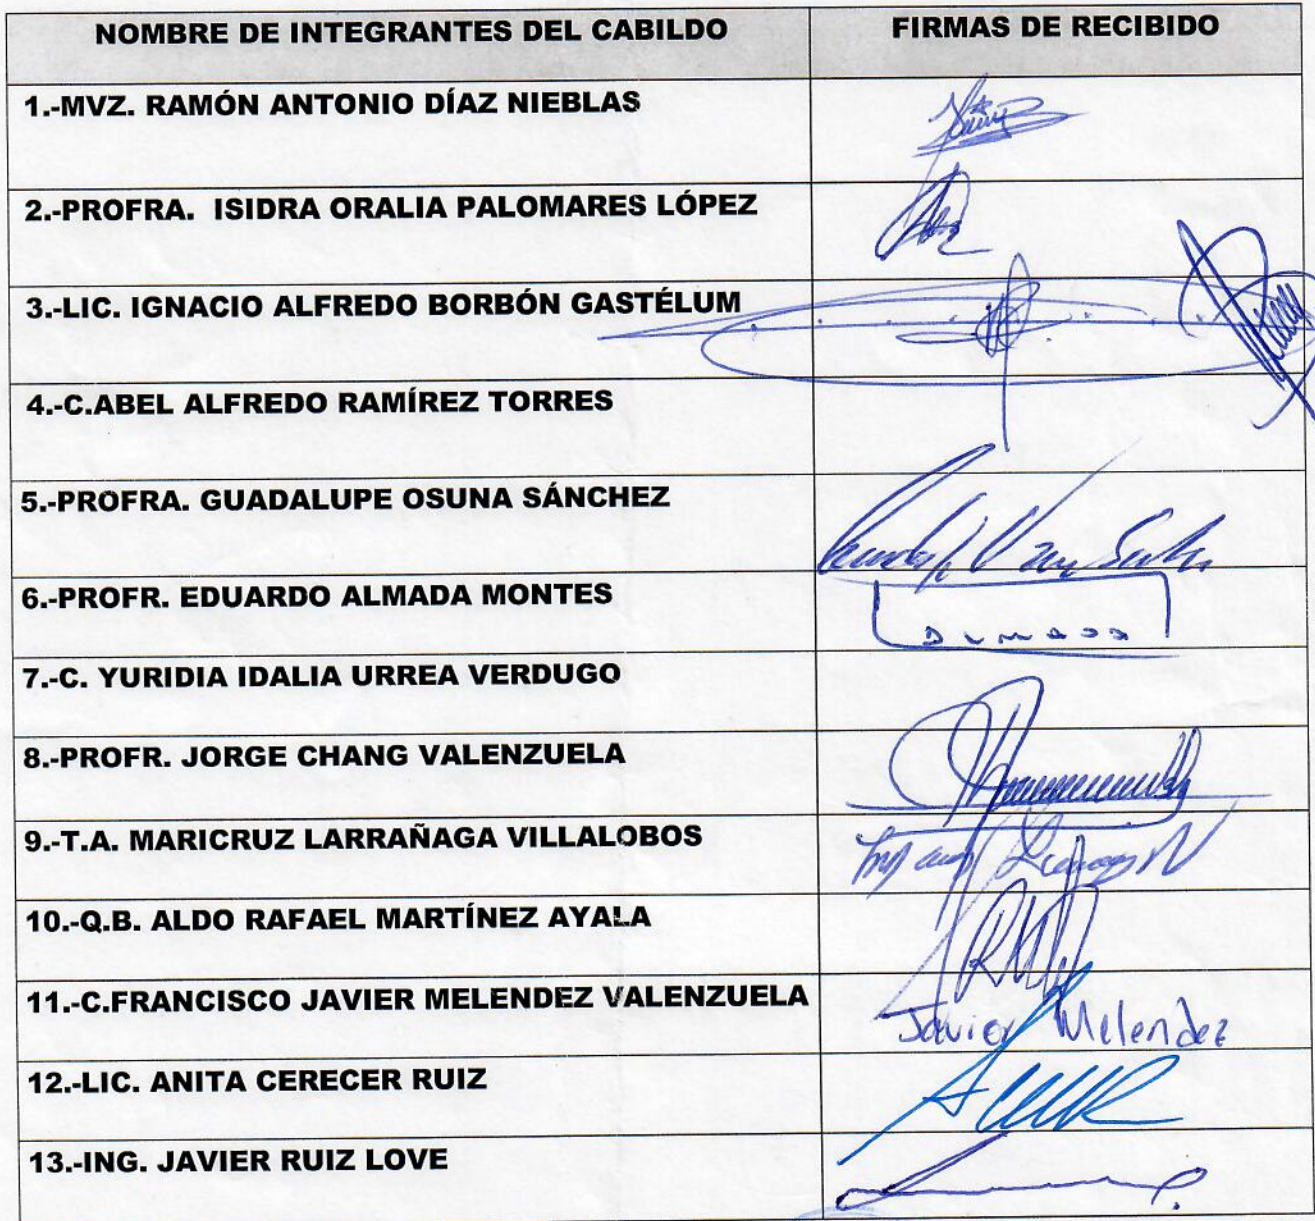 NOMBRE DE INTEGRANTES DEL CABILDO FIRMAS DE RECIBIDO
1.-MVZ. RAMÓN ANTONIO DÍAZ NIEBLAS
2.-PROFRA. ISIDRA ORALIA PALOMARES LÓPEZ
3.-LIC. IGNACIO ALFREDO BORBÓN GASTÉLUM
4.-C.ABEL ALFREDO RAMÍREZ TORRES
5.-PROFRA. GUADALUPE OSUNA SÁNCHEZ
6.-PROFR. EDUARDO ALMADA MONTES
7.-C. YURIDIA IDALIA URREA VERDUGO
8.-PROFR. JORGE CHANG VALENZUELA
9.-T.A. MARICRUZ LARRAÑAGA VILLALOBOS
10.-Q.B. ALDO RAFAEL MARTÍNEZ AYALA
11.-C.FRANCISCO JAVIER MELENDEZ VALENZUELA Javier Melendez
12.-LIC. ANITA CERECER RUIZ
13.-ING. JAVIER RUIZ LOVE